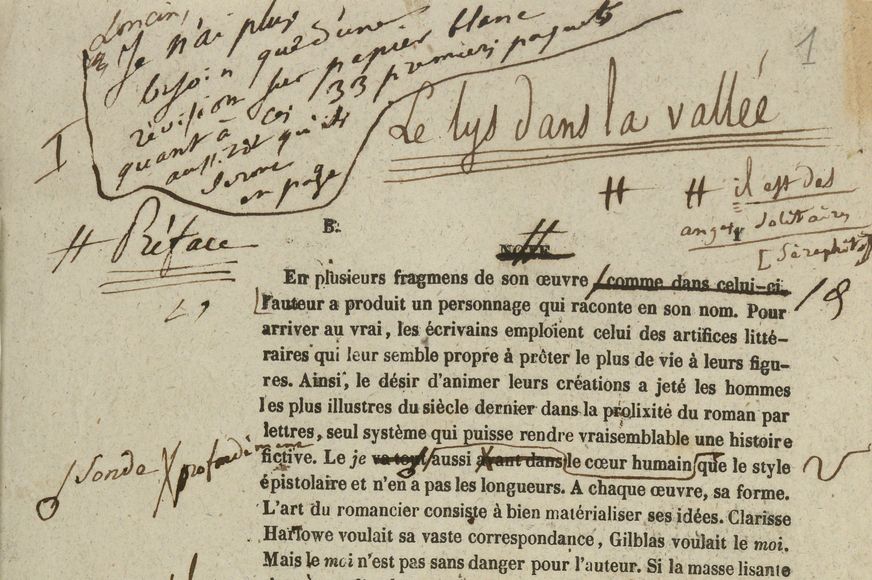 1
Je n'ai plus
besoin que d'une
révision sur papier blanc
quant à ces 33 premiers paquets
aussitôt qu'ils
seront
en page
I
Le lys dans la vallée
# # il est des
anges solitaires
[Séraphita]
# Préface
B.
I
NOTE
En plusieurs fragmens de son œuvre comme dans celui-ci,
l'auteur a produit un personnage qui raconte en son nom. Pour
arriver au vrai, les écrivains emploient celui des artifices litté-
raires qui leur semble propre à prêter le plus de vie à leurs figu-
res. Ainsi, le désir d'animer leurs créations a jeté les hommes
les plus illustres du siècle dernier dans la prolixité du roman par
lettres, seul système qui puisse rendre vraisemblable une histoire
fictive. Le je va tout aussi avant dans le cœur humain que le style
sonde profondément
épistolaire et n'en a pas les longueurs. A chaque œuvre, sa forme.
L'art du romancier consiste à bien matérialiser ses idées. Clarisse
Harlowe voulait sa vaste correspondance, Gilblas voulait le moi.
Mais le moi n'est pas sans danger pour l'auteur. Si la masse lisante